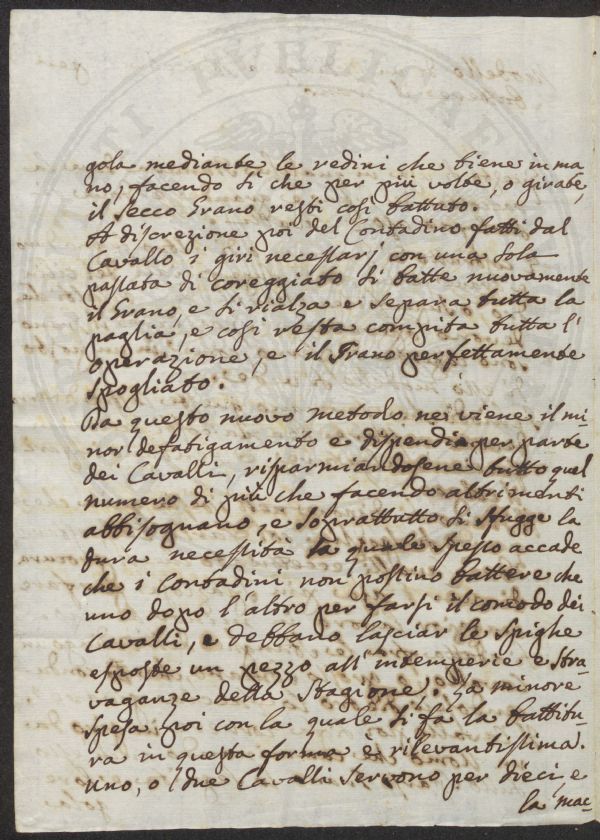 gola mediante le redini che tiene in ma
no, facendo sì che per più volte, o girate,
il secco Grano resti così battuto.
A discrezione poi del Contadino fatti dal
Cavallo i giri necessarj con una sola
passata di coreggiato si batte nuovamente
il Grano, e si rialza e separa tutta la
paglia, e così resta compita tutta l'
operazione, e il Grano perfettamente
spogliato.
Da questo nuovo metodo ne viene il mi-
nor defatigamento e dispendio per parte
dei Cavalli, risparmiandosene tutto quel
numero di più che facendo altrimenti
abbisognano, e soprattutto si sfugge la
dura necessità la quale spesso accade
che i Contadini non possino battere che
uno dopo l'altro per farsi il comodo dei
Cavalli, e debbano lasciar le spighe
esposte un pezzo all'intemperie e stra-
vaganze della Stagione. La minore
spesa poi con la quale si fa la battitu-
ra in questa forma è rilevantissima.
Uno, o due Cavalli servono per dieci, e
la mac-